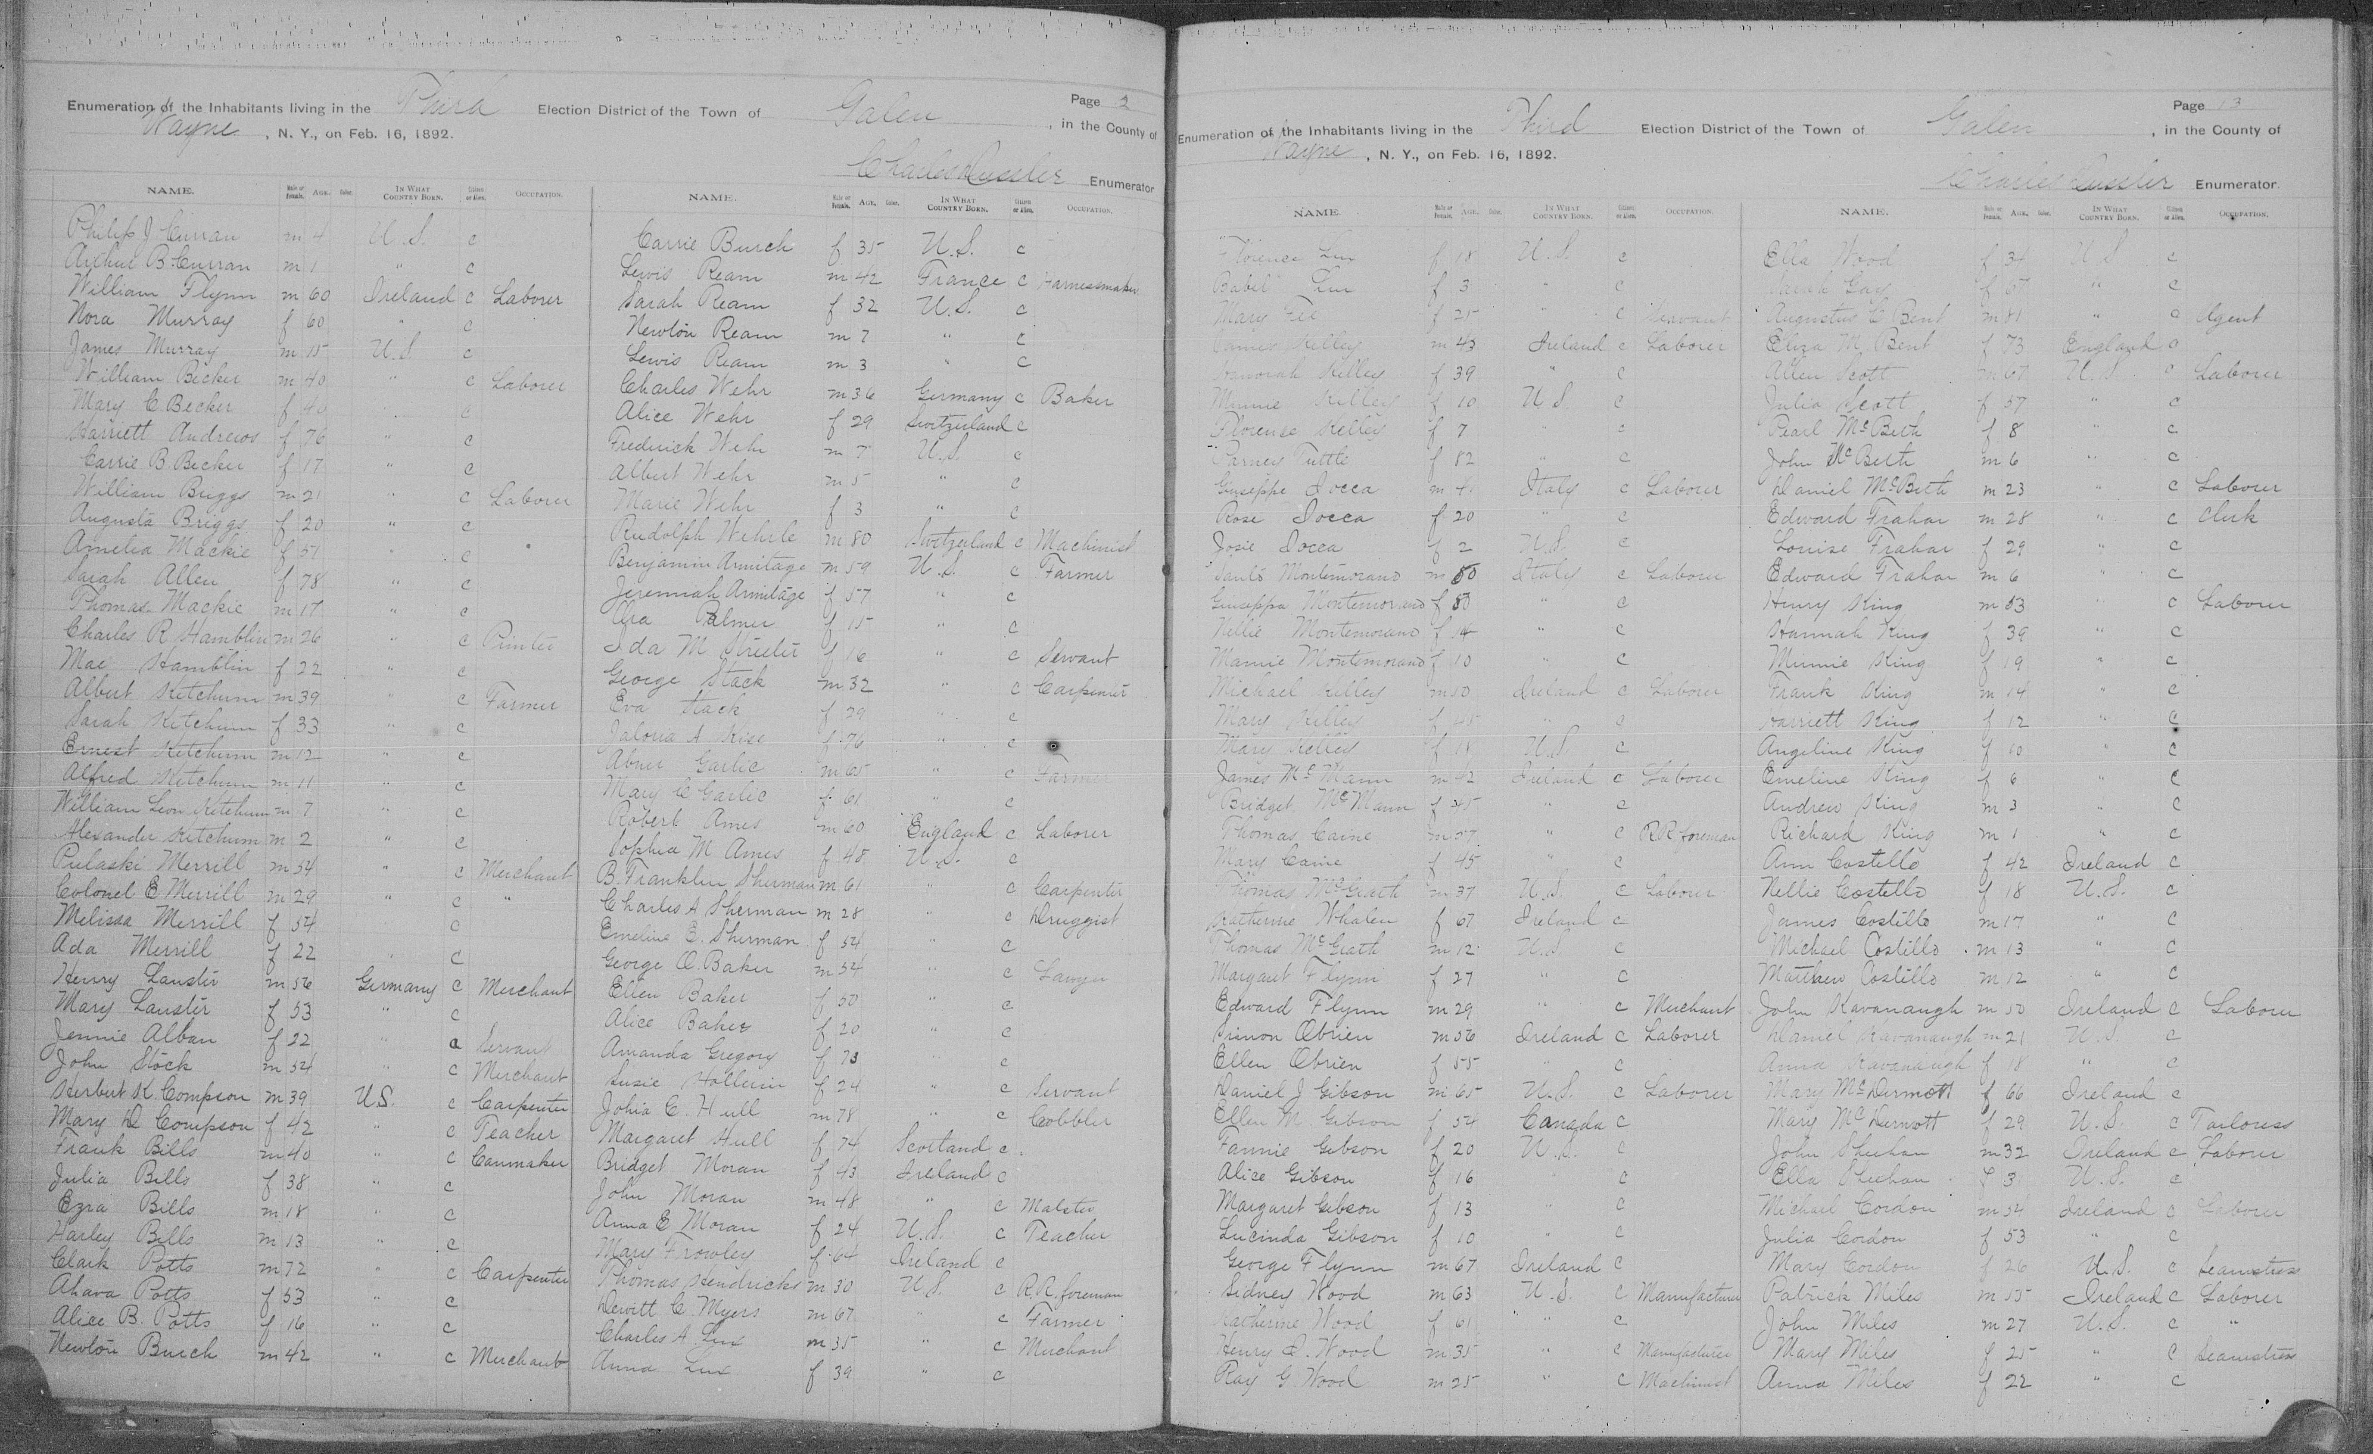 Enumeration of the Inhabitants living in the Third Election District of the Town of Galen Page 2
Wayne, N. Y., on Feb. 16, 1892. , in the County of
Charles Cussler Enumerator
NAME. Male or Female. AGE. Color. IN WHAT COUNTRY BORN. Citizen or Alien. OCCUPATION.
Philip J Curran m 4 U.S. c
Arthur B. Curran m 1 " c
William Flynn m 60 Ireland c Laborer
Nora Murray f 60 " c
James Murray m 15 U.S. c
William Becker m 40 " c Laborer
Mary C Becker f 40 " c
Harriett Andrews f 76 " c
Carrie B. Becker f 17 " c
William Briggs m 21 " c Laborer
Augusta Briggs f 20 " c
Amelia Mackie f 51 " c
Sarah Allen f 78 " c
Thomas Mackie m 17 " c
Charles R Hamblin m 26 " c Printer
Mae Hamblin f 22 " c
Albert Ketchum m 39 " c Farmer
Sarah Ketchum f 33 " c
Ernest Ketchum m 12 " c
Alfred Ketchum m 11 " c
William Leon Ketchum m 7 " c
Alexander Ketchum m 2 " c
Pulaski Merrill m 54 " c Merchant
Colonel E Merrill m 29 " c "
Melissa Merrill f 54 c
Ada Merrill f 22 c
Henry Lauster m 56 Germany c Merchant
Mary Lauster f 53 " c
Jennie Alban f 22 " a Servant
John Stock m 54 " c Merchant
Herbert K. Compson m 39 U.S. c Carpenter
Mary D Compson f 42 " c Teacher
Frank Bills m 40 " c Canmaker
Julia Bills f 38 " c
Ezra Bills m 18 " c
Harley Bills m 13 " c
Clark Potts m 72 " c Carpenter
Ahava Potts f 53 " c
Alice B. Potts f 16 " c
Newton Burch m 42 " c Merchant
NAME. Male or Female. AGE. Color. IN WHAT COUNTRY BORN. Citizen or Alien. OCCUPATION.
Carrie Burch f 35 U.S. c
Lewis Ream m 42 France c Harnessmaker
Sarah Ream f 32 U.S. c
Newton Ream m 7 " c
Lewis Ream m 3 " c
Charles Wehr m 36 Germany c Baker
Alice Wehr f 29 Switzerland c
Frederick Wehr m 7 U.S. c
Albert Wehr m 5 " c
Marie Wehr f 3 " c
Rudolph Wehrle m 80 Switzerland c Machinist
Benjamin Armitage m 59 U.S. c Farmer
Jeremiah Armitage f 57 " c
Ora Palmer f 15 " c
Ida M Streeter f 16 " c Servant
George Stack m 32 " c Carpenter
Eva Stack f 29 " c
A f 76 " c
Abner Garlic m 65 " c Farmer
Mary C Garlic f 61 " c
Robert Ames m 60 England c Laborer
Sophia M Ames f 48 U.S. c
B. Franklin Sherman m 61 " c Carpenter
Charles A Sherman m 28 " c Druggist
Emeline E. Sherman f 54 " c
George O. Baker m 54 " c Lawyer
Ellen Baker f 50 " c
Alice Baker f 20 " c
Amanda Gregory f 73 c
Susie Hollenin f 24 " c Servant
John C. Hull m 78 " c Cobbler
Margaret Hull f 74 Scotland c
Bridget Moran f 43 Ireland c
John Moran m 48 " c Malster
Anna E Moran f 24 U.S. c Teacher
Mary Frowley f 64 Ireland c
Thomas Hendricks m 30 U.S. c R.R. foreman
Dewitt C. Myers m 67 " c Farmer
Charles A. Lux m 35 " c Merchant
Anna Lux f 39 " c
Enumeration of the Inhabitants living in the Third Election District of the Town of Galen Page 13
Wayne, N. Y., on Feb. 16, 1892. , in the County of
Charles Cussler Enumerator.
NAME. Male or Female. AGE. Color. IN WHAT COUNTRY BORN. Citizen or Alien. OCCUPATION.
Florence Lux f 18 U.S. c
Babel Lux f 3 " c
Mary f 25 " c Servant
James Kelley m 43 Ireland c Laborer
Honorah Kelley f 39 " c
Minnie Kelley f 10 U.S. c
Florense Kelley f 7 " c
Tuttle f 82 " c
Guseppe Iocca m 41 Italy c Laborer
Rose Iocca f 20 " c
Josie Iocca f 2 U.S. c
Montemorano m 50 Italy c Laborer
Guiseppa Montemorano f 50 " c
Nellie Montemorano f 14 " c
Mamie Montemorano f 10 " c
Michael Kelley m 50 Ireland c Laborer
Mary Kelley f 48 " c
Mary Kelley f 18 U.S. c
James McMann m 42 Ireland c Laborer
Bridget McMann f 45 " c
Thomas Caine m 57 " c R.R. foreman
Mary Caine f 45 " c
Thomas McGrath m 37 U.S. c Laborer
Katherine Whalen f 67 Ireland c
Thomas McGrath m 12 U.S. c
Margaret Flynn f 27 " c
Edward Flynn m 29 " c Merchant
Simon Obrien m 56 Ireland c Laborer
Ellen Obrien f 55 " c
Daniel J Gibson m 65 U.S. c Laborer
Ellen M Gibson f 54 Canada c
Fannie Gibson f 20 U.S. c
Alice Gibson f 16 c
Margaret Gibson f 13 " c
Lucinda Gibson f 10 " c
George Flynn m 67 Ireland c
Sidney Wood m 63 U.S. c Manufacturer
Katherine Wood f 61 " c
Henry D. Wood m 35 " c Manufacturer
Ray G. Wood m 25 " c Machinist
NAME. Male or Female. AGE. Color. IN WHAT COUNTRY BORN. Citizen or Alien. OCCUPATION.
Ella Wood f 34 U.S. c
Sarah Gay f 65 " c
Augustus C Bent m 81 " c Agent
Eliza M. Bent f 73 England c
Allen Scott m 67 U.S. c Laborer
Julia Scott f 57 " c
Pearl McBeth f 8 " c
John McBeth m 6 " c
Daniel McBeth m 23 " c Laborer
Edward Frahar m 28 " c Clerk
Louise Frahar f 29 " c
Edward Frahar m 6 " c
Henry King m 53 " c Laborer
Hannah King f 39 " c
Minnie King f 19 " c
Frank King m 14 " c
Harriett King f 12 " c
Angeline King f 10 " c
Emeline King f 6 " c
Andrew King m 3 " c
Richard King m 1 " c
Ann Costello f 42 Ireland c
Nellie Costello f 18 U.S. c
James Costello m 17 " c
Michael Costello m 13 " c
Matthew Costello m 12 " c
John Kavanaugh m 50 Ireland c Laborer
Daniel Kavanaugh m 21 U.S. c
Anna Kavanaugh f 18 " c
Mary McDermott f 66 Ireland c
Mary McDermott f 29 U.S. c Tailoress
John Sheehan m 32 Ireland c Laborer
Ella Sheehan f 3 U.S. c
Michael Cordon m 54 Ireland c Laborer
Julia Cordon f 53 " c
Mary Cordon f 26 U.S. c Seamstress
Patrick Miles m 55 Ireland c Laborer
John Miles m 27 U.S. c "
Mary Miles f 25 " c Seamstress
Anna Miles f 22 " c